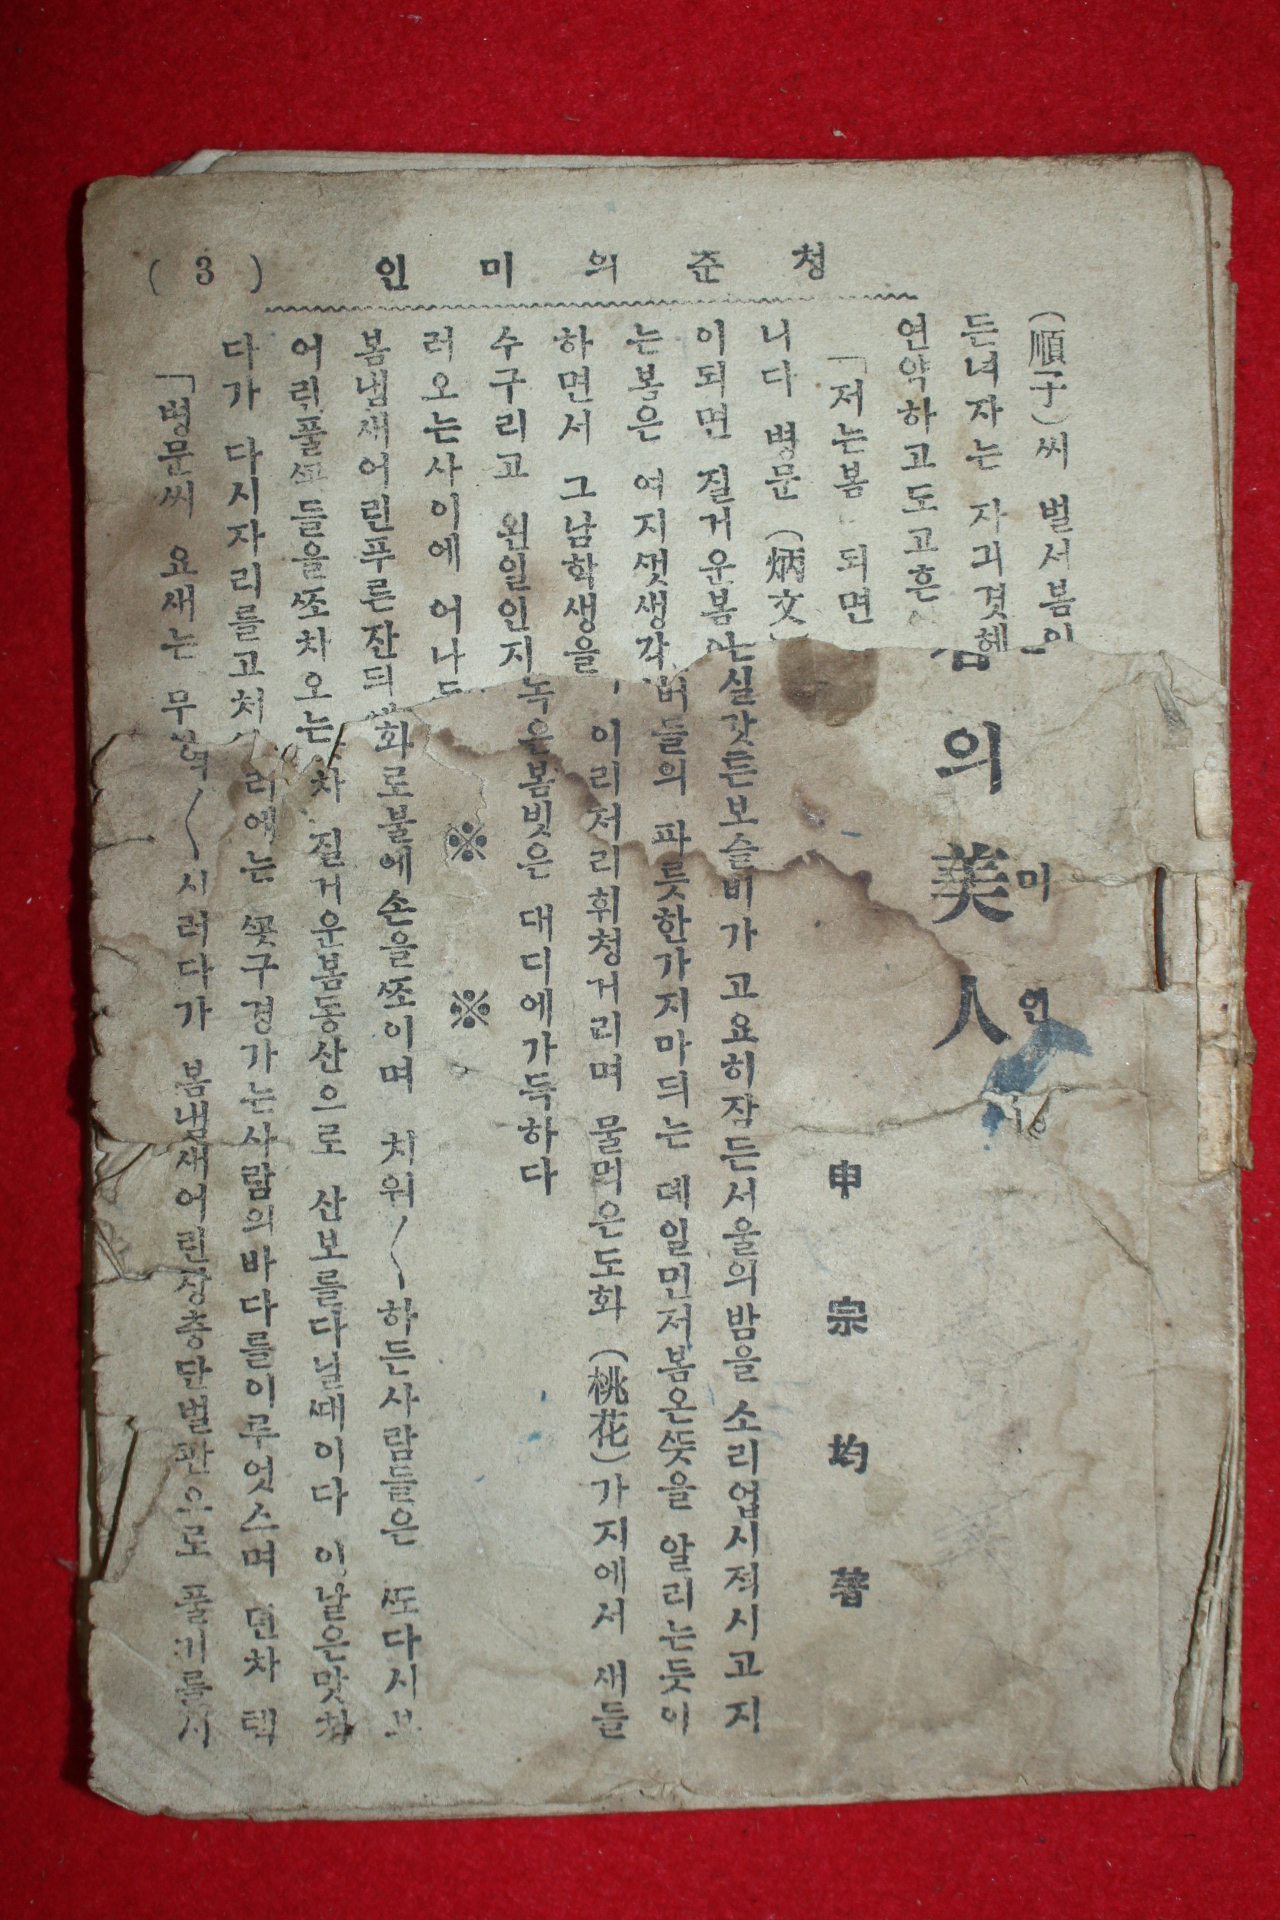 ( 3 ) 인 미 의 춘 청
(順子)씨 벌서봄이
든녀자는 자긔겻헤
연약하고도고흔
「저는봄 되면
니다 병문 (炳文
이되면 질거운봄
는봄은 여지ᄭᅥᆺ생각
하면서 그남학생을
수구리고 왼일인지
러오는사이에 어나
봄냄새어린푸른잔듸
어린풀싹들을ᄶᅩ차오는
다가 다시자리를고처
「병문씨 요새는 무
의 美人
미 인
申 宗 均 著
는실갓튼보슬비가 고요히잠든서울의밤을 소리업시적시고 지
버들의 파릇한가지마듸는 뎨일먼저봄온ᄯᅳᆺ을 알리는듯이
이리저리휘청거리며 물먹은도화 (桃花)가지에서 새들
녹은봄빗은 대디에가득하다
※ ※
화로불에손을ᄶᅩ이며 치워〳〵하든사람들은 ᄯᅩ다시보
차 질거운봄동산으로 산보를다닐ᄯᅢ이다 이날은맛참
리에는 ᄭᅩᆺ구경가는사람의바다를이루엇스며 뎐차 택
〳〵시러다가 봄냄새어린 벌판으로 풀기를시